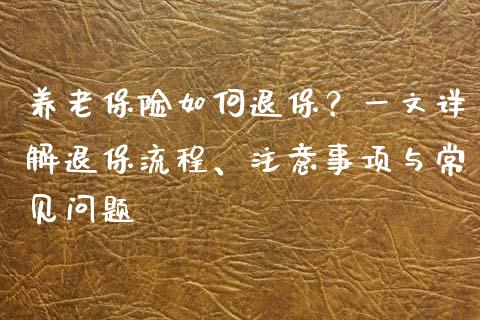 养老保险如何退保？一文详
解退保流程、注意事项与常
见问题